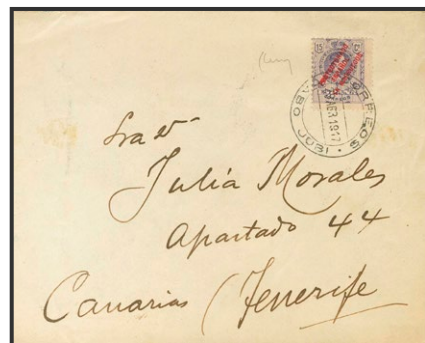 CORREOS
1917
Julia Morales
Apartado 44
Canarias (Tenerife